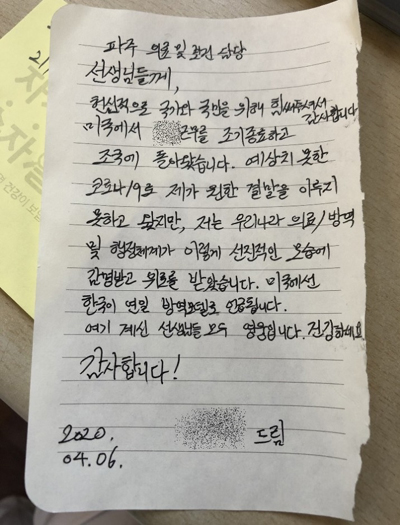 파주 의료 및 보건 담당
선생님들께,
헌신적으로 국가와 국민을 위해 힘써주셔서
감사합니다
미국에서 근무를 조기종료하고
조국에 돌아왔습니다. 예상치 못한
코로나19로 제가 원한 결말을 이루지
못하고 왔지만, 저는 우리나라 의료/방역
및 행정체계가 이렇게 선진적인 모습에
감명받고 위로를 받았습니다. 미국에선
한국이 연일 방역모델로 언급됩니다.
여기 계신 선생님들 모두 영웅입니다. 건강하세요
감사합니다!
2020.
드림
04.06.